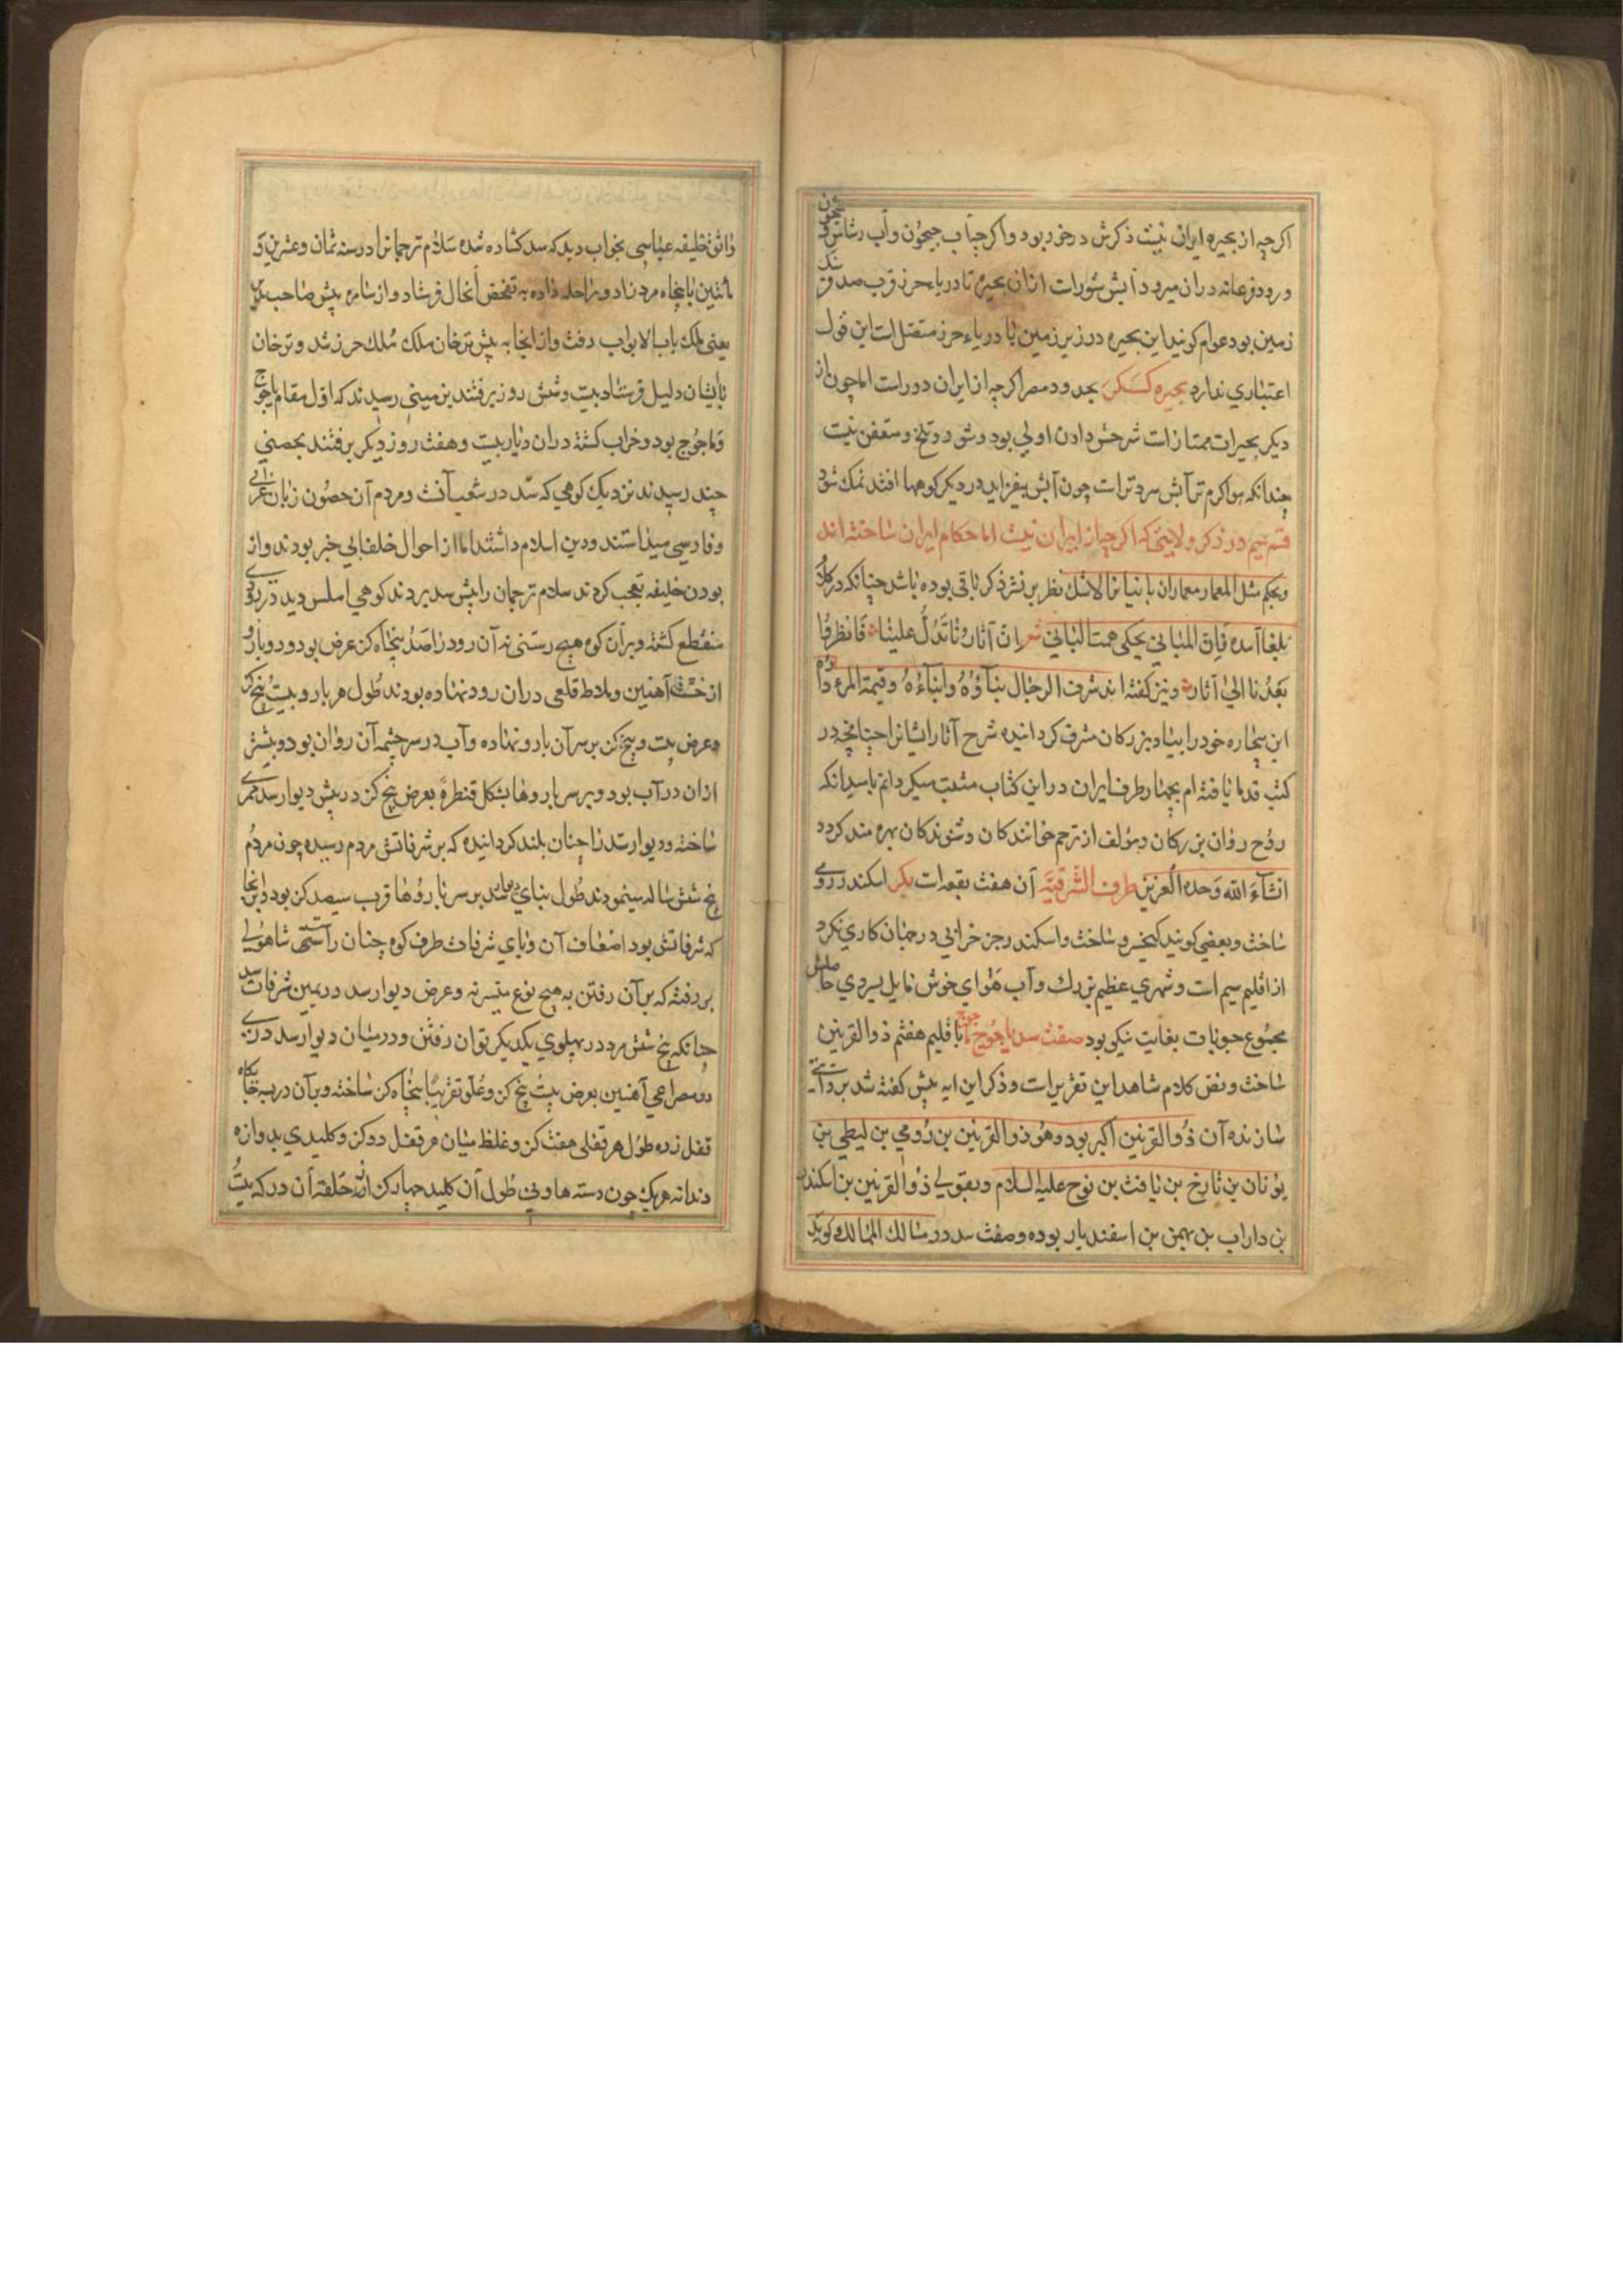 اکرچه از بحیره ایران نیست ذکرش درخور بود واکرچه آب جیحون وآب رشاش و سیحون
ورود فرغانه دران میرود آبش شورست ازان بحیره تا دریاء خزر قرب صد فرسنک
زمین بود عوام کویند این بحیره در زیر زمین با دریاء خزر متصلست این قول
اعتباری ندارد بحیره کسکر بحدود مصر اکرچه از ایران دورست اما چون از
دیکر بحیرات ممتازست شرحش دادن اولی بود وشور وتلخ ومتعفن نیست
چندانکه هوا کرم تر آبش سردترست چون آبش بیفزاید در دیکر کوهها افتد نمک شود
قسم سیم در ذکر ولایتی که اکرچه از ایران نیست اما حکام ایران ساخته اند
وبحکم مثل المعمار معماران بانیانرا لاشک نظر بر نشر ذکر باقی بوده باشد چنانکه در کلام
بلغا آمده فان المبانی یحکی همة البانی شعر ان آثارنا تدل علینا فانظروا
بعدنا الی آثار ونیز کفته اند شرف الرجال بناؤه وابناءه وقیمة المرء داره
این بیچاره خود را بیاد بزرکان مشرف کردانیده شرح آثار ایشانرا چنانچه در
کتب قدما یافته ام بچهار طرف ایران در این کتاب مثبت میکردانم بامید آنکه
روح روان بزرکان ومؤلف از ترحم خوانندکان وشنوندکان بهره مند کردد
انشاءَ الله وَحده العزیز طرف الشرقیّة آن هفت بقعه است یکر اسکندر رومی
ساخت وبعضی کویند کیخسرو ساخت واسکندر جز خرابی در جهان کاری نکرد
از اقلیم سیم است وشهری عظیم بزرک وآب هوای خوش مایل بسردی حاصلش
مجموع حبوبات بغایت نیکو بود صفت سد یاجوج ماجوج باقلیم هفتم ذوالقرنین
ساخت ونص کلام شاهد این تقریرست وذکر این ایه پیش کفته شد بروایتی
سازنده آن ذوالقرنین اکبر بود وهو ذوالقرنین بن رومی بن لیطی بن
یونان بن تارخ بن یافث بن نوح علیه السلام وبقولی ذوالقرنین بن اسکندر
بن داراب بن بهمن بن اسفندیار بوده وصفت سد در مسالک الممالک کوید
واثق خلیفه عباسی بخواب دید که سد کشاده شده سلام ترجمانرا در سنه ثمان وعشرین و
مأتین با پنجاه مرد زاد وراحله داده به تفحص آنحال فرستاد واز سامره پیش صاحب
یعنی ملک باب الابواب رفت واز انجا به پیش ترخان ملک مُلک خزر شد وترخان
باایشان دلیل فرستاد بیست وشش روز برفتند بزمینی رسیدند که اول مقام یاجوج
وماجوج بود وخراب کشته دران دیار بیست وهفت روز دیکر برفتند بحصنی
چند رسیدند نزدیک کوهی که سد در شعب آنست ومردم آن حصون زبان عربی
وفارسی میدانستند ودین اسلام داشتند اما از احوال خلفا بی خبر بودند واز
بودن خلیفه تعجب کردند سلام ترجمان را پیش سد بردند کوهی املس دید
منقطع کشته وبران کوه هیچ رستنی نه آن رود را صد پنجاه کز عرض بود ودو بارو
از خشت آهنین وملاط قلعی دران رود نهاده بودند طول هر بارو بیست پنج کز
وعرض بیست وپنج کز بر سر آن بارو نهاده وآب در سر چشمه آن روان بود وبیشتر
ازان در آب بود وبر سر باروها بشکل قنطرة بعرض پنج کز در پیش دیوار سد ممری
ساخته ودیوار سد را چنان بلند کردانیده که بر شرفاتش مردم رسیده چون مردم
پنج شش ساله مینمودند طول بنای دیوار سد بر سر باروها قرب سیصد کز بود وانجا
که شرفاتش بود اضعاف آن وبای شرفات طرف کوه چنان راستی شاهولی
بر رفته که بر آن رفتن به هیچ نوع میسر نه وعرض دیوار سد در بین شرفات
چنانکه پنج شش مرد در پهلوی یکدیکر توان رفتن ودر میان دیوار سد دری
دو مصراعی آهنین بعرض بیست پنج کز وعلو تقریبا پنجاه کز ساخته وبرآن
قفل زده طول هر قفلی هفت کز وغلظ میان هر قفل دو کز وکلیدی بدوازه
دندانه هر یک چون دسته هاونی طول آن کلید چهار کز حلقه آن در که